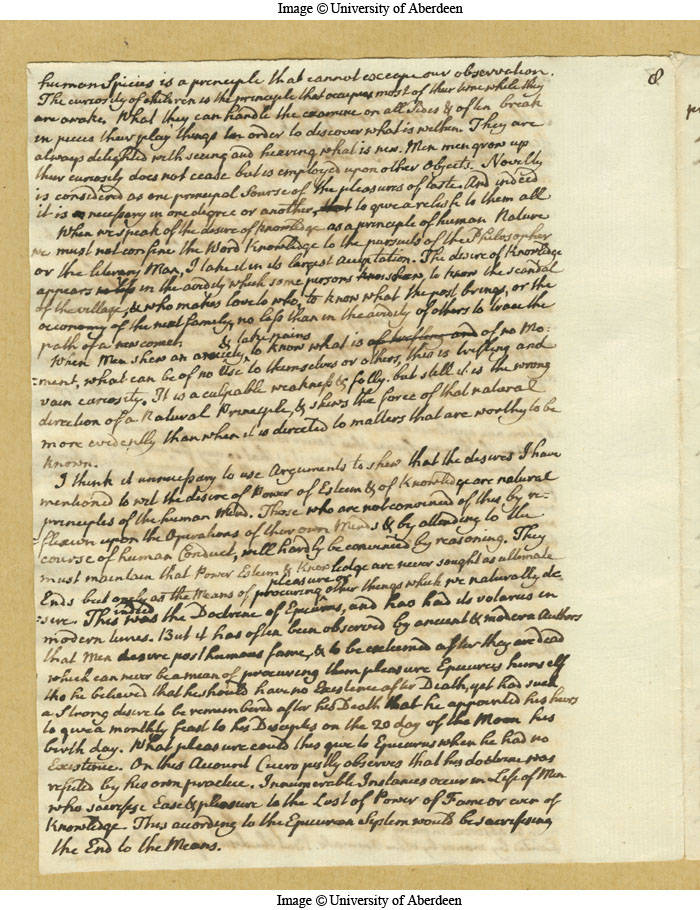 Image © University of Aberdeen
8
human Species is a principle that cannot escape our observation.
The curiosity of children is the principle that occupies most of their time while they
are awake. What they can handle the examine on all Sides & often break
in pieces their play things in order to discover what is within. They are
always delighted with seeing and hearing what is new. Men men grow up
their curiosity does not cease but is employed upon other Objects. Novelty
is considered as one principal Sourse of the pleasures of taste. And indeed
it is necessary in one degree or another, to give a relish to them all
When we speak of the desire of Knowledge as a principle of human Nature
we must not confine the Word Knowledge to the pursuits of the Philosopher
or the literary Man, I take it in its largest Acceptation. The desire of Knowledge
appears in the avidity which some persons to know the scandal
of the village, & who makes love to who, to know what the post brings, or the
oeconomy of the next family, no less than in the avidity of others to trace the
path of a new comet.
& take pains
When Men shew an anxiety, to know what is and of no Mo:
:ment, what can be of no Use to themselves or others, this is trifling and
vain curiosity. It is a culpable weakness & folly. but still it is the wrong
direction of a Natural Principle, & shews the force of that natural
more evidently than when it is directed to matters that are worthy to be
known.
I think it unnecessary to use Arguments to shew that the desires I have
mentioned to wit the desire of Power of Esteem & of Knowledge are natural
principles of the human Mind. Those who are not convinced of this by re-
:flexion upon the Operations of their own Minds & by attending to the
course of human Conduct, will hardly be convinced by reasoning. They
must maintain that Power Esteem & Knowledge are never sought as ultimate
pleasure or
Ends but only as the Means of procuring other things which we naturally de
indeed
:sire. This was the Doctrine of Epicurus, and has had its votaries in
modern times. But it has often been observed by ancient & modern Authors
that Men desire posthumous fame, & to be esteemed after they are dead
which can never be a mean of procuring them pleasure Epicurus himself
tho he believed that he should have no Existence after Death, yet had such
a Strong desire to be remembered after his Death that he appointed his heirs
to give a monthly feast to his Disciples on the 20 day of the Moon his
birth day. What pleasure could this give to Epicurus when he had no
Existence. On this Account Cicero justly observes that his doctrine was
refuted by his own practice. Innumerable Instances occur in Life of Men
who sacrifise Ease & pleasure to the Lust of Power of Fame or even of
Knowledge. Thus according to the Epicurean System would be sacrifising
the End to the Means.
Image © University of Aberdeen